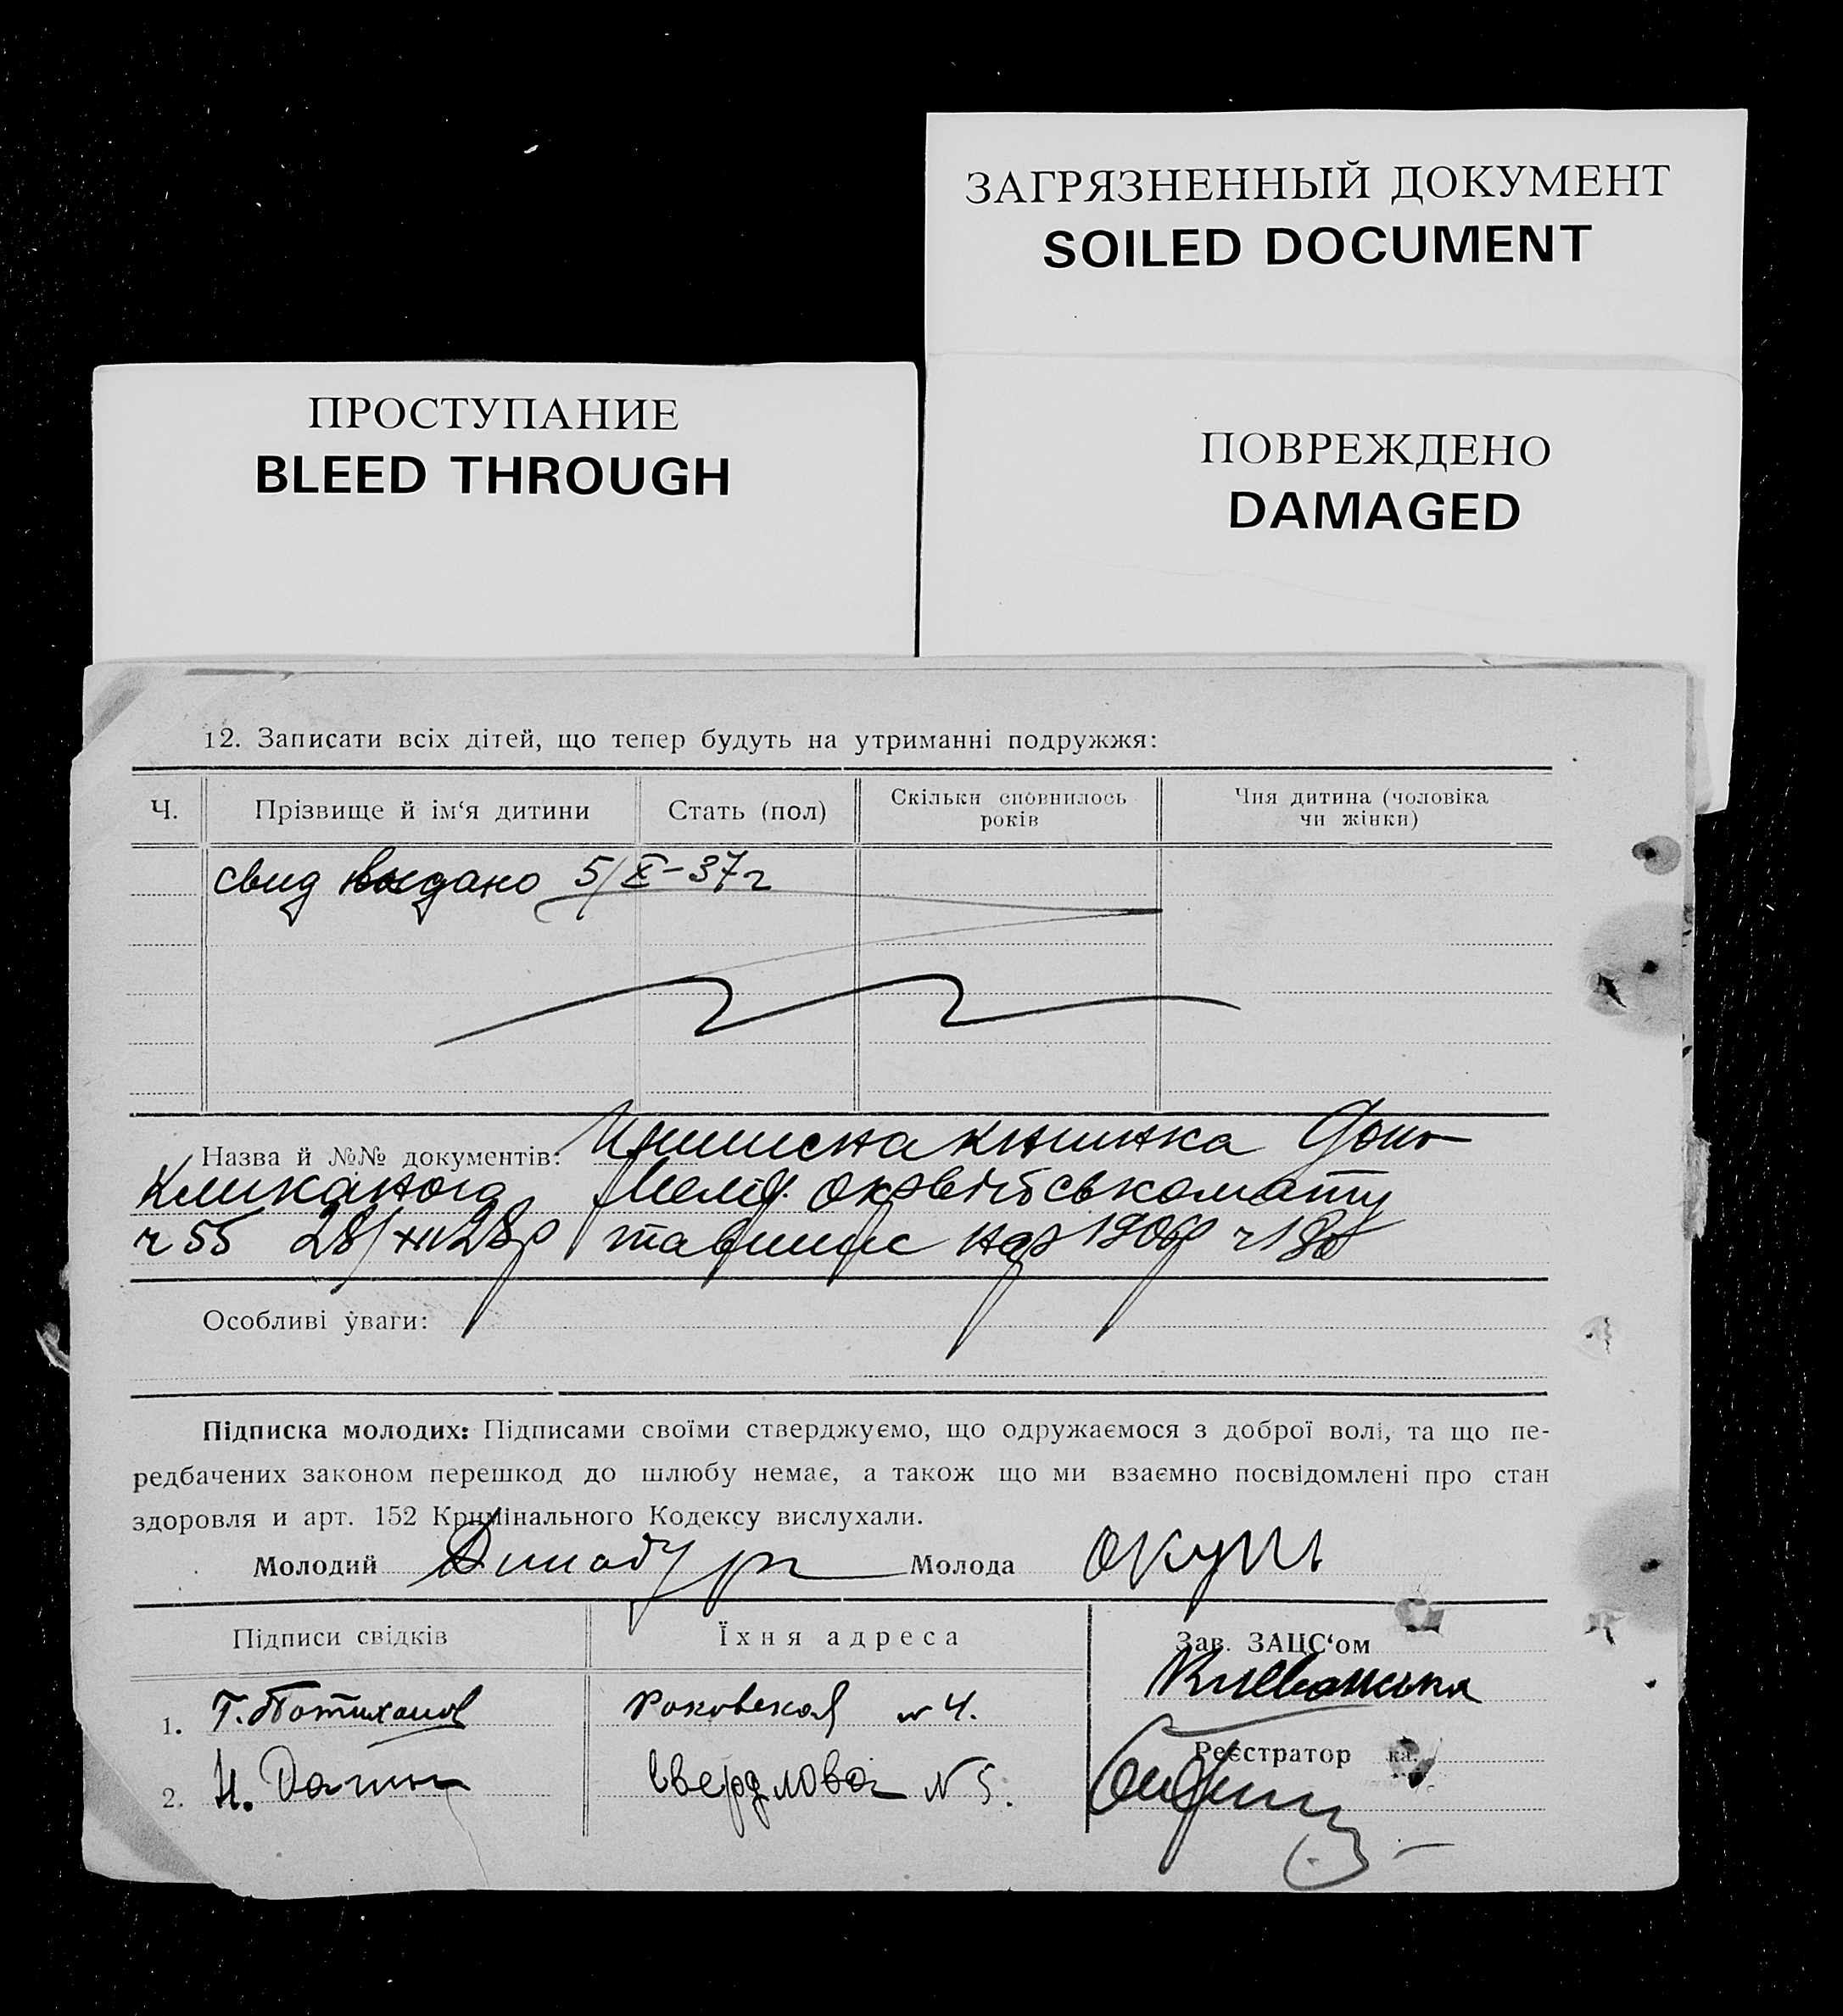 ЗАГРЯЗНЕННЫЙ ДОКУМЕНТ
SOILED DOCUMENT
ПРОСТУПАНИЕ
BLEED THROUGH
ПОВРЕЖДЕНО
DAMAGED
12. Записати всіх дітей, що тепер будуть на утриманні подружжя:
Ч.
Прізвище й ім‘я дитини
Стать (пол)
Скільки сповнилось
років
Чия дитина (чоловіка
чи жінки)
свид выдано 5/X-37г
Назва й №№ документів: Приписна книжка
окрвійськомату
ч 55 28/XII 28р
Особливі уваги:
Підписка молодих: Підписами своїми стверджуємо, що одружаємося з доброї волі, та що пе-
редбачених законом перешкод до шлюбу немає, а також що ми взаємно посвідомлені про стан
здоровля и арт. 152 Кримінального Кодексу вислухали.
Молодий
Молода Окунь
Підписи свідків
Їхня адреса
Зав. ЗАЦС‘ом
1. Г. Потиханов
Роковская № 4.
Реєстратор ка.
2. И.
Свердлова № 5.